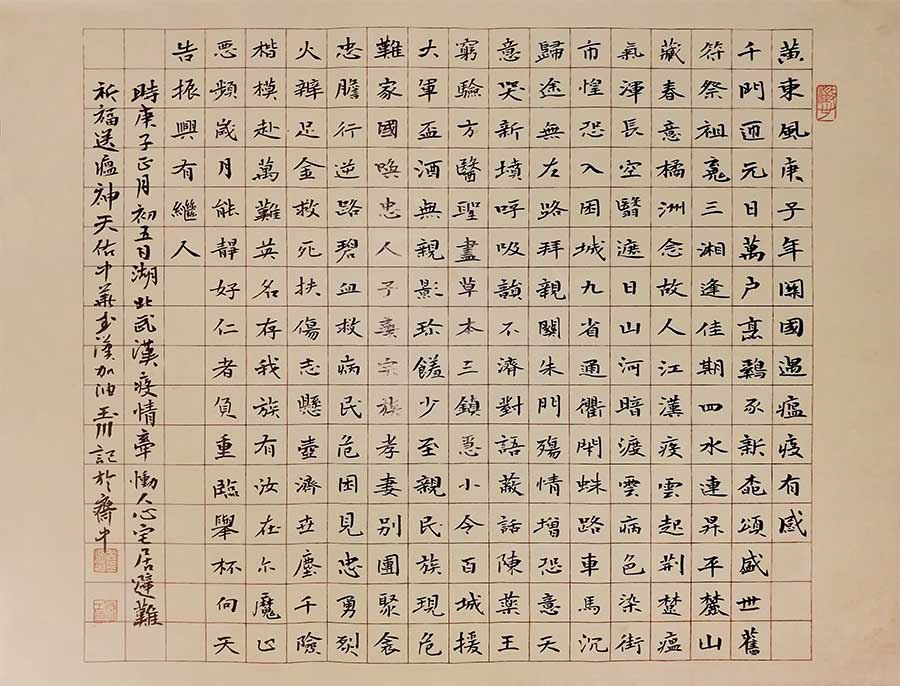 黃東風庚子年關國遇瘟疫有感
千門迊元日萬户烹鷄豕新桃頌盛世舊
符祭祖䰟三湘逢佳期四水連昇平麓山
藏春意橘洲念故人江漢疾雲起荆楚瘟
氣渾長空翳遮日山河暗渡雲病色染街
市惶恐入困城九省通衢閑蛛路車馬沉
歸途無左路拜親關朱門殤情增恐意天
意哭新墳呼吸韻不濟對語蔽話陳藥王
窮驗方醫聖盡草本三鎮急小令百城援
大軍盃酒無親影珍饈少至親民族現危
難家國喚忠人子棄宗族孝妻別團聚舍
忠膽行逆路碧血救病民危困見忠勇烈
火辨足金救死扶傷志懸壺濟世塵千險
楷模赴萬難英名存我族有汝在尓魔止
惡頻歲月能靜好仁者負重臨舉杯向天
告振興有繼人
時庚子正月初五日湖北武漢疫情牽慟人心宅居避難
祈福送瘟神天佑中華武漢加油玉川記於齋中